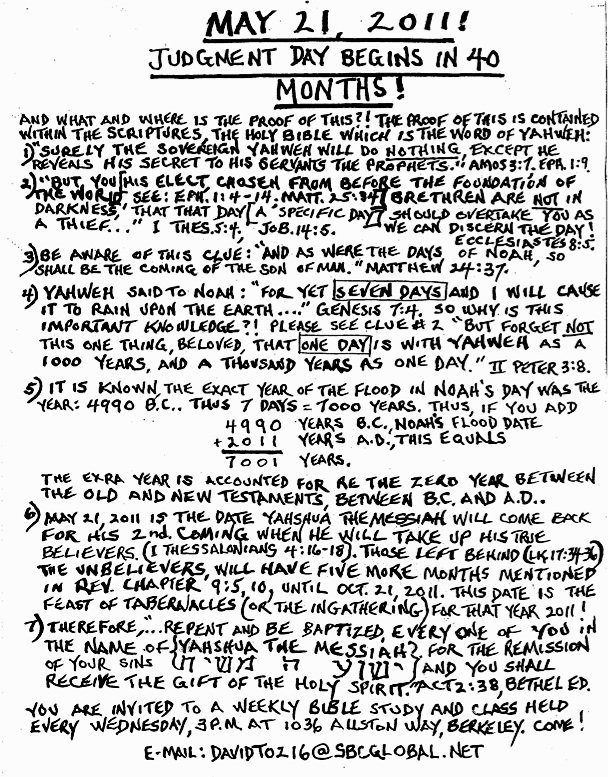 MAY 21, 2011!
JUDGMENT DAY BEGINS IN 40
MONTHS!
AND WHAT AND WHERE IS THE PROOF OF THIS?! THE PROOF OF THIS IS CONTAINED
WITHIN THE SCRIPTURES, THE HOLY BIBLE WHICH IS THE WORD OF YAHWEH:
1) "SURELY THE SOVEREIGN YAHWEH WILL DO NOTHING, EXCEPT HE
REVEALS HIS SECRET TO HIS SERVANTS THE PROPHETS." AMOS 3:7. EPH. 1:9.
2) "BUT, YOU [HIS ELECT, CHOSEN FROM BEFORE THE FOUNDATION OF
THE WORLD, SEE: EPH. 1:4-14. MATT. 25:34] BRETHREN ARE NOT IN
DARKNESS, THAT THAT DAY [A "SPECIFIC DAY"] SHOULD OVERTAKE YOU AS
A THIEF..." I THES. 5:4, JOB. 14:5. WE CAN DISCERN THE DAY!
ECCLESIASTES 8:5.
3) BE AWARE OF THIS CLUE: "AND AS WERE THE DAYS OF NOAH, SO
SHALL BE THE COMING OF THE SON OF MAN." MATTHEW 24:37.
4) YAHWEH SAID TO NOAH: "FOR YET SEVEN DAYS AND I WILL CAUSE
IT TO RAIN UPON THE EARTH...." GENESIS 7:4. SO WHY IS THIS
IMPORTANT KNOWLEDGE?! PLEASE SEE CLUE # 2 "BUT FORGET NOT
THIS ONE THING, BELOVED, THAT ONE DAY IS WITH YAHWEH AS A
1000 YEARS, AND A THOUSAND YEARS AS ONE DAY." II PETER 3:8.
5) IT IS KNOWN, THE EXACT YEAR OF THE FLOOD IN NOAH'S DAY WAS THE
YEAR: 4990 B.C.. THUS 7 DAYS = 7000 YEARS. THUS, IF YOU ADD
4990 YEARS B.C., NOAH'S FLOOD DATE
+2011 YEARS A.D., THIS EQUALS
7001 YEARS.
THE EXRA YEAR IS ACCOUNTED FOR RE THE ZERO YEAR BETWEEN
THE OLD AND NEW TESTAMENTS, BETWEEN B.C. AND A.D..
6) MAY 21, 2011 IS THE DATE YAHSHUA THE MESSIAH WILL COME BACK
FOR HIS 2nd. COMING WHEN HE WILL TAKE UP HIS TRUE
BELIEVERS. (I THESSALONIANS 4:16-18). THOSE LEFT BEHIND (LK.17:34-36)
THE UNBELIEVERS, WILL HAVE FIVE MORE MONTHS MENTIONED
IN REV. CHAPTER 9:5, 10, UNTIL OCT. 21, 2011. THIS DATE IS THE
FEAST OF TABERNACLES (OR THE INGATHERING) FOR THAT YEAR 2011!
7) THEREFORE, "... REPENT AND BE BAPTIZED, EVERY ONE OF YOU IN
THE NAME OF [YAHSHUA THE MESSIAH] FOR THE REMISSION
OF YOUR SINS AND YOU SHALL
RECEIVE THE GIFT OF THE HOLY SPIRIT." ACT 2:38, BETHEL ED.
YOU ARE INVITED TO A WEEKLY BIBLE STUDY AND CLASS HELD
EVERY WEDNESDAY, 3 P.M. AT 1036 ALLSTON WAY, BERKELEY. COME!
E-MAIL: DAVIDTO216@SBCGLOBAL.NET